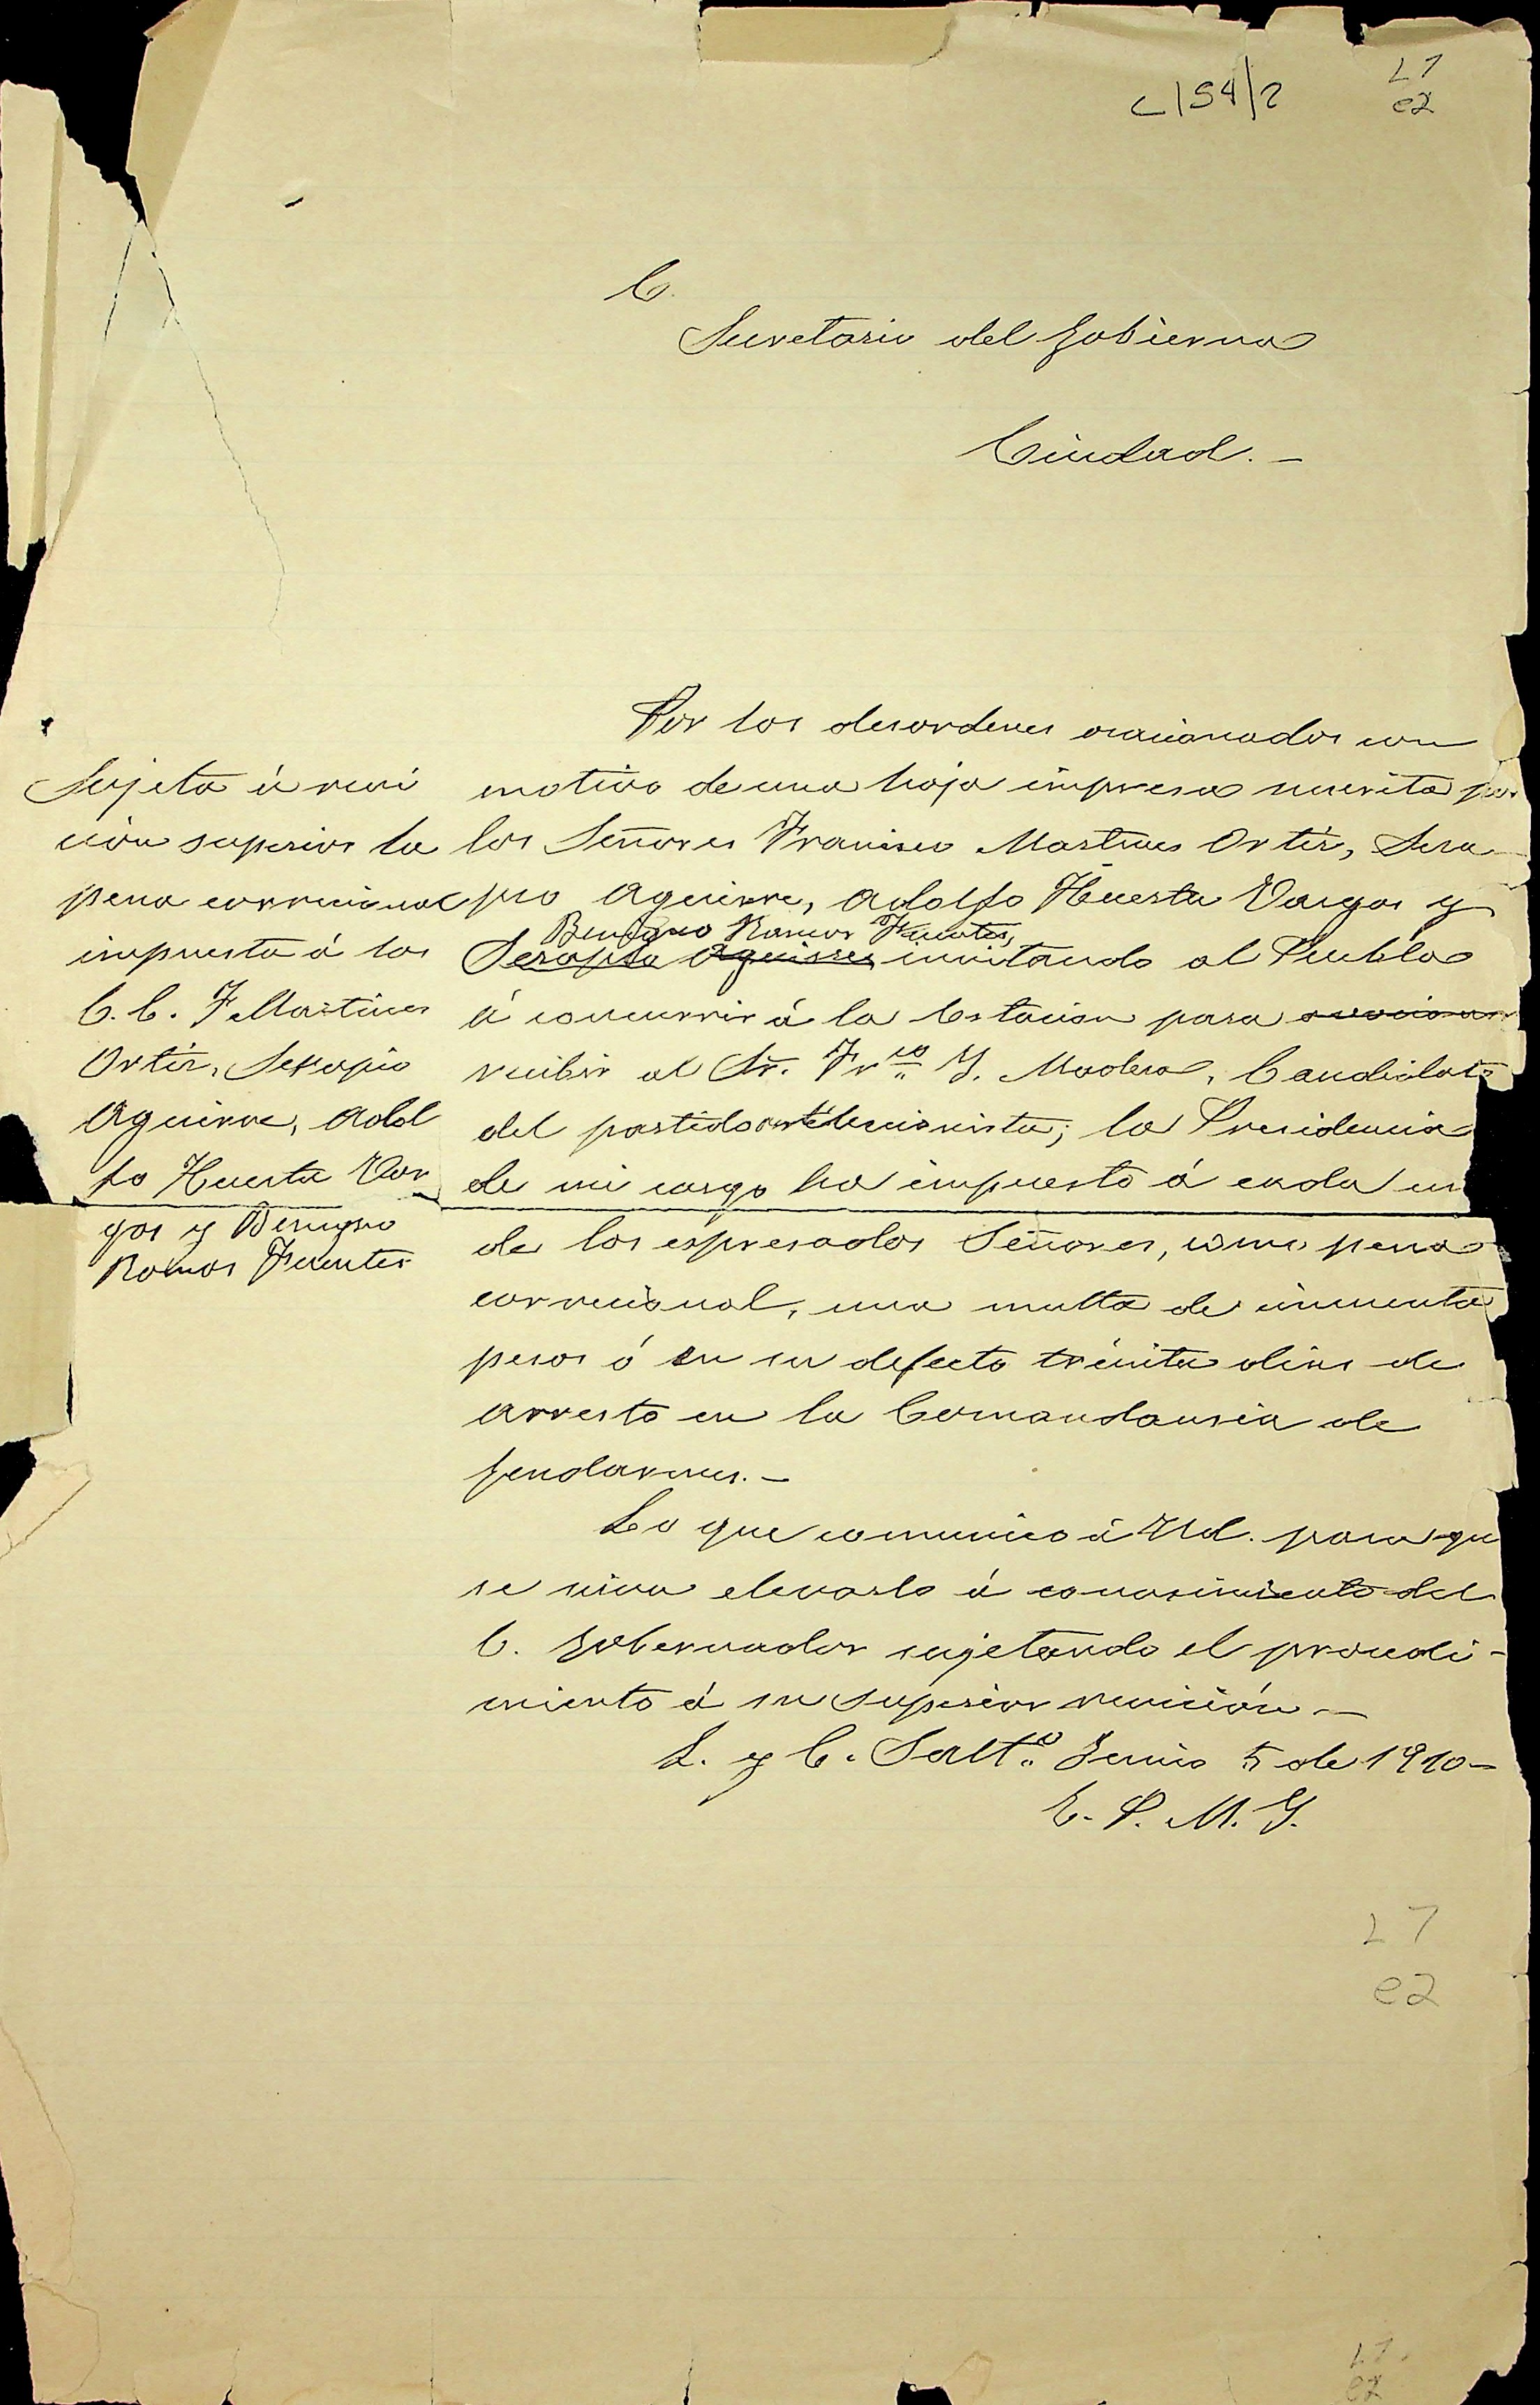 C 154/2
L7
e2
C.
Secretario del Gobierno
Ciudad. -
Sujeta á revi
ción superior la
pena correcional
impuesta á los
C.C. F Martines
Ortíz, Serapio
Aguirre, Adol
fo Huerta Var
gas y Benigno
Ramos Fuentes
Por los desordenes ocacionados con
motivo de una hoja impresa suscrita por
los Señores Francisco Martines Ortíz, Sera
pio Aguirre, Adolfo Huerta Vargas y
Benigno Ramos Fuentes,
Serapio Aguirre, invitando al Pueblo
á concurrir á la Estacion para ovacionar
recibir al Sr. Frco Y. Madero, Candidato
del partido antirelecionista; la Presidencia
de mi cargo ha impuesto á cada un
de los espresados Señores, como pena
correcional, una multa de cincuenta
pesos ó en su defecto treinta dias de
arresto en la Comandansia de
Gendarmes. -
Lo que comunico á Ud. para que
se sirva elevarlo á conosimiento del
C. Gobernador sujetando el procedi-
miento á su superior revición -
L. y C. Saltº Junio 5 de 1910 -
E. P. M. Y.
L7
e2
L7.
e2